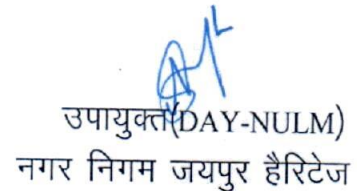 उपायुक्त(DAY-NULM)
नगर निगम जयपुर हैरिटेज